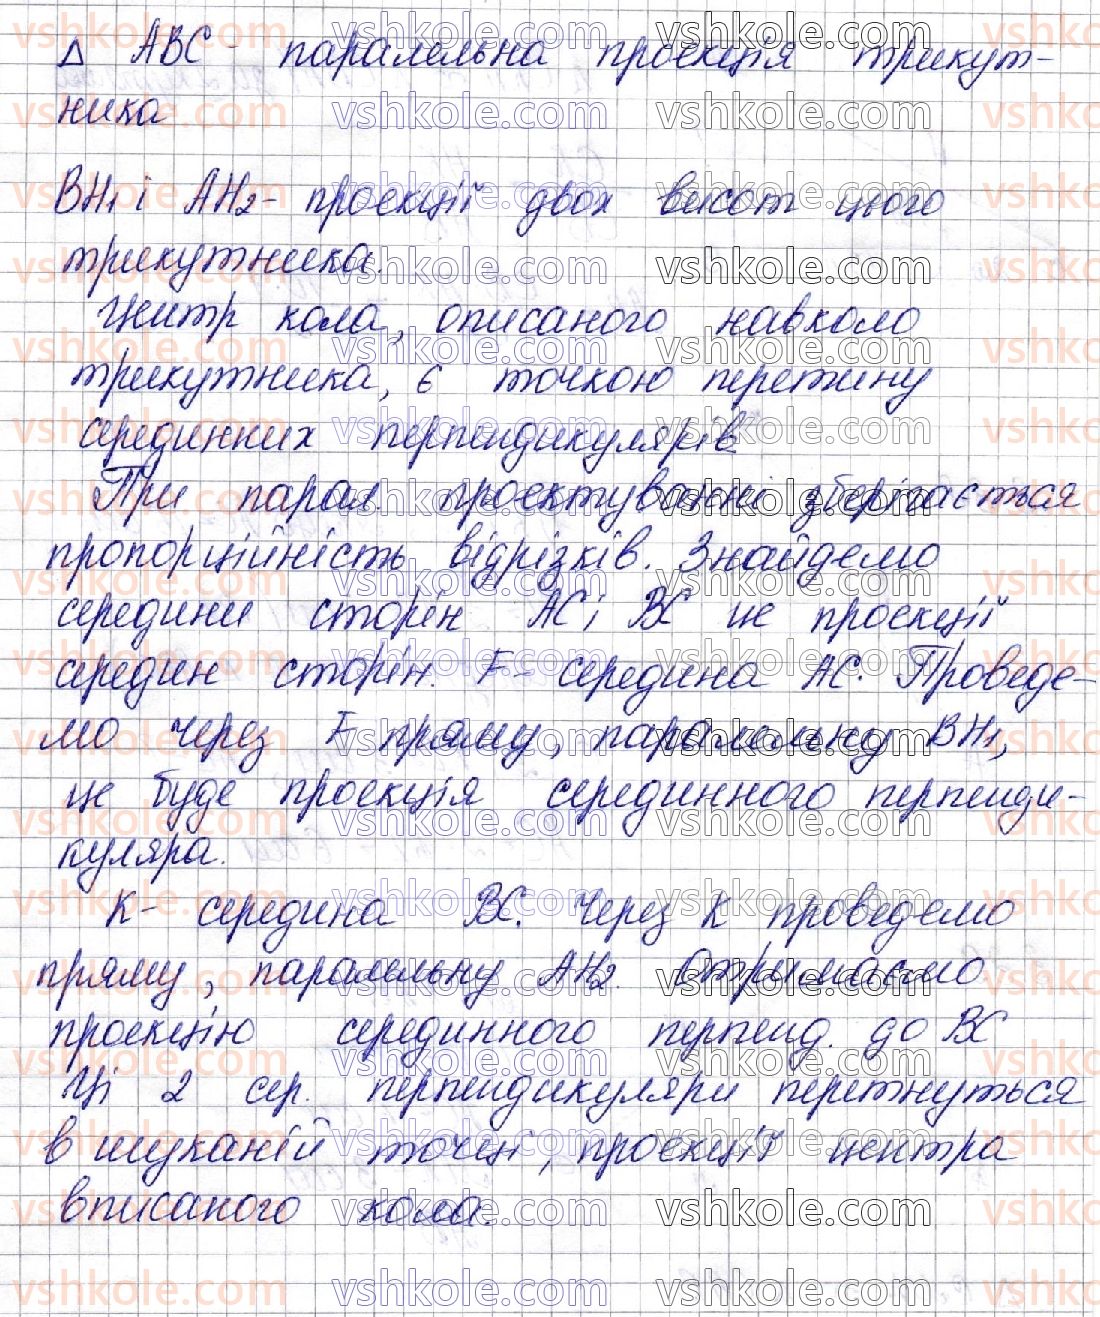 Δ ABC - паралельна проекція трикут-
ника
BH₁ і AH₂ - проекції двох висот цього
трикутника.
Центр кола, описаного навколо
трикутника, є точкою перетину
серединних перпендикулярів
При парал. проектуванні зберігається
пропорційність відрізків. Знайдемо
середини сторін AC і BC це проекції
середин сторін. F - середина AC. Проведе-
мо через F пряму, паралельну BH₁,
це буде проекція серединного перпенди-
куляра.
K - середина BC. Через K проведемо
пряму, паралельну AH₂. Отримаємо
проекцію серединного перпенд. до BC
Ці 2 сер. перпендикуляри перетнуться
в шуканій точці, проекції центра
вписаного кола.
vshkole.com